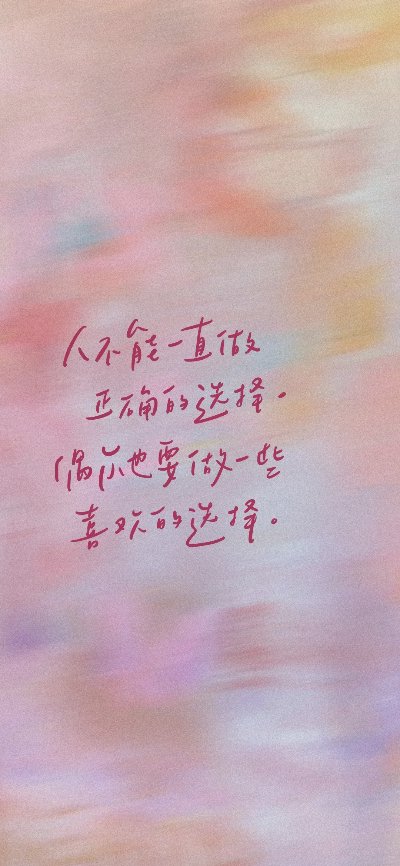 人不能一直做
正确的选择。
偶尔也要做一些
喜欢的选择。